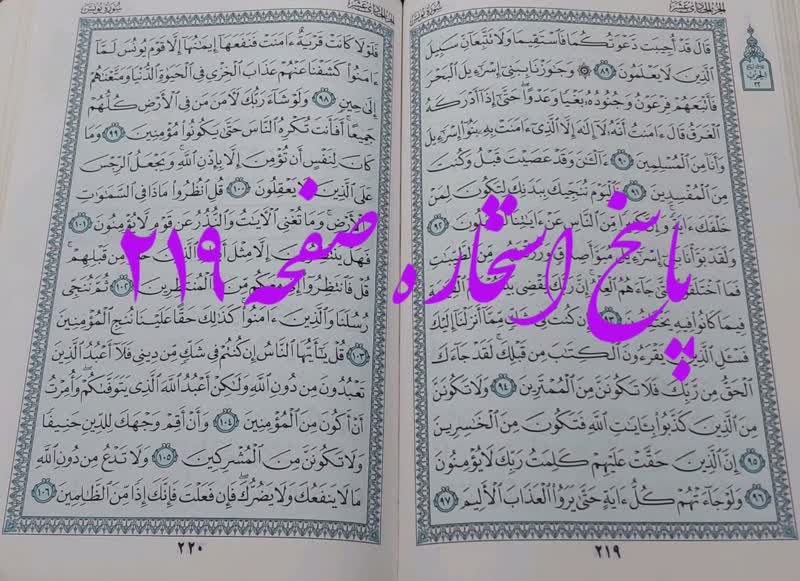 سورة يونس
الجزء الحادي عشر
قَالَ قَدْ أُجِيبَت دَّعْوَتُكُمَا فَٱسْتَقِيمَا وَلَا تَتَّبِعَآنِّ سَبِيلَ
ٱلَّذِينَ لَا يَعْلَمُونَ ٨٩ ۞ وَجَٰوَزْنَا بِبَنِىٓ إِسْرَٰٓءِيلَ ٱلْبَحْرَ
فَأَتْبَعَهُمْ فِرْعَوْنُ وَجُنُودُهُۥ بَغْيًا وَعَدْوًا حَتَّىٰٓ إِذَآ أَدْرَكَهُ
ٱلْغَرَقُ قَالَ ءَامَنتُ أَنَّهُۥ لَآ إِلَٰهَ إِلَّا ٱلَّذِىٓ ءَامَنَتْ بِهِۦ بَنُوٓا۟ إِسْرَٰٓءِيلَ
وَأَنَا۠ مِنَ ٱلْمُسْلِمِينَ ٩٠ ءَآلْـَٰٔنَ وَقَدْ عَصَيْتَ قَبْلُ وَكُنتَ
مِنَ ٱلْمُفْسِدِينَ ٩١ فَٱلْيَوْمَ نُنَجِّيكَ بِبَدَنِكَ لِتَكُونَ لِمَنْ
خَلْفَكَ ءَايَةً وَإِنَّ كَثِيرًا مِّنَ ٱلنَّاسِ عَنْ ءَايَٰتِنَا لَغَٰفِلُونَ ٩٢
وَلَقَدْ بَوَّأْنَا بَنِىٓ إِسْرَٰٓءِيلَ مُبَوَّأَ صِدْقٍ وَرَزَقْنَٰهُم مِّنَ ٱلطَّيِّبَٰتِ
فَمَا ٱخْتَلَفُوا۟ حَتَّىٰ جَآءَهُمُ ٱلْعِلْمُ إِنَّ رَبَّكَ يَقْضِى بَيْنَهُمْ يَوْمَ ٱلْقِيَٰمَةِ
فِيمَا كَانُوا۟ فِيهِ يَخْتَلِفُونَ ٩٣ فَإِن كُنتَ فِى شَكٍّ مِّمَّآ أَنزَلْنَآ إِلَيْكَ
فَسْـَٔلِ ٱلَّذِينَ يَقْرَءُونَ ٱلْكِتَٰبَ مِن قَبْلِكَ لَقَدْ جَآءَكَ
ٱلْحَقُّ مِن رَّبِّكَ فَلَا تَكُونَنَّ مِنَ ٱلْمُمْتَرِينَ ٩٤ وَلَا تَكُونَنَّ
مِنَ ٱلَّذِينَ كَذَّبُوا۟ بِـَٔايَٰتِ ٱللَّهِ فَتَكُونَ مِنَ ٱلْخَٰسِرِينَ
٩٥ إِنَّ ٱلَّذِينَ حَقَّتْ عَلَيْهِمْ كَلِمَتُ رَبِّكَ لَا يُؤْمِنُونَ
٩٦ وَلَوْ جَآءَتْهُمْ كُلُّ ءَايَةٍ حَتَّىٰ يَرَوُا۟ ٱلْعَذَابَ ٱلْأَلِيمَ ٩٧
٢١٩
سورة يونس
الجزء الحادي عشر
فَلَوْلَا كَانَتْ قَرْيَةٌ ءَامَنَتْ فَنَفَعَهَآ إِيمَٰنُهَآ إِلَّا قَوْمَ يُونُسَ لَمَّآ
ءَامَنُوا۟ كَشَفْنَا عَنْهُمْ عَذَابَ ٱلْخِزْىِ فِى ٱلْحَيَوٰةِ ٱلدُّنْيَا وَمَتَّعْنَٰهُمْ
إِلَىٰ حِينٍ ٩٨ وَلَوْ شَآءَ رَبُّكَ لَـَٔامَنَ مَن فِى ٱلْأَرْضِ كُلُّهُمْ
جَمِيعًا أَفَأَنتَ تُكْرِهُ ٱلنَّاسَ حَتَّىٰ يَكُونُوا۟ مُؤْمِنِينَ ٩٩ وَمَا
كَانَ لِنَفْسٍ أَن تُؤْمِنَ إِلَّا بِإِذْنِ ٱللَّهِ وَيَجْعَلُ ٱلرِّجْسَ
عَلَى ٱلَّذِينَ لَا يَعْقِلُونَ ١٠٠ قُلِ ٱنظُرُوا۟ مَاذَا فِى ٱلسَّمَٰوَٰتِ
وَٱلْأَرْضِ وَمَا تُغْنِى ٱلْـَٔايَٰتُ وَٱلنُّذُرُ عَن قَوْمٍ لَّا يُؤْمِنُونَ ١٠١
فَهَلْ يَنتَظِرُونَ إِلَّا مِثْلَ أَيَّامِ ٱلَّذِينَ خَلَوْا۟ مِن قَبْلِهِمْ
قُلْ فَٱنتَظِرُوٓا۟ إِنِّى مَعَكُم مِّنَ ٱلْمُنتَظِرِينَ ١٠٢ ثُمَّ نُنَجِّى
رُسُلَنَا وَٱلَّذِينَ ءَامَنُوا۟ كَذَٰلِكَ حَقًّا عَلَيْنَا نُنجِ ٱلْمُؤْمِنِينَ
١٠٣ قُلْ يَٰٓأَيُّهَا ٱلنَّاسُ إِن كُنتُمْ فِى شَكٍّ مِّن دِينِى فَلَآ أَعْبُدُ ٱلَّذِينَ
تَعْبُدُونَ مِن دُونِ ٱللَّهِ وَلَٰكِنْ أَعْبُدُ ٱللَّهَ ٱلَّذِى يَتَوَفَّىٰكُمْ وَأُمِرْتُ
أَنْ أَكُونَ مِنَ ٱلْمُؤْمِنِينَ ١٠٤ وَأَنْ أَقِمْ وَجْهَكَ لِلدِّينِ حَنِيفًا
وَلَا تَكُونَنَّ مِنَ ٱلْمُشْرِكِينَ ١٠٥ وَلَا تَدْعُ مِن دُونِ ٱللَّهِ
مَا لَا يَنفَعُكَ وَلَا يَضُرُّكَ فَإِن فَعَلْتَ فَإِنَّكَ إِذًا مِّنَ ٱلظَّٰلِمِينَ ١٠٦
٢٢٠
پاسخ استخاره صفحه ٢١٩